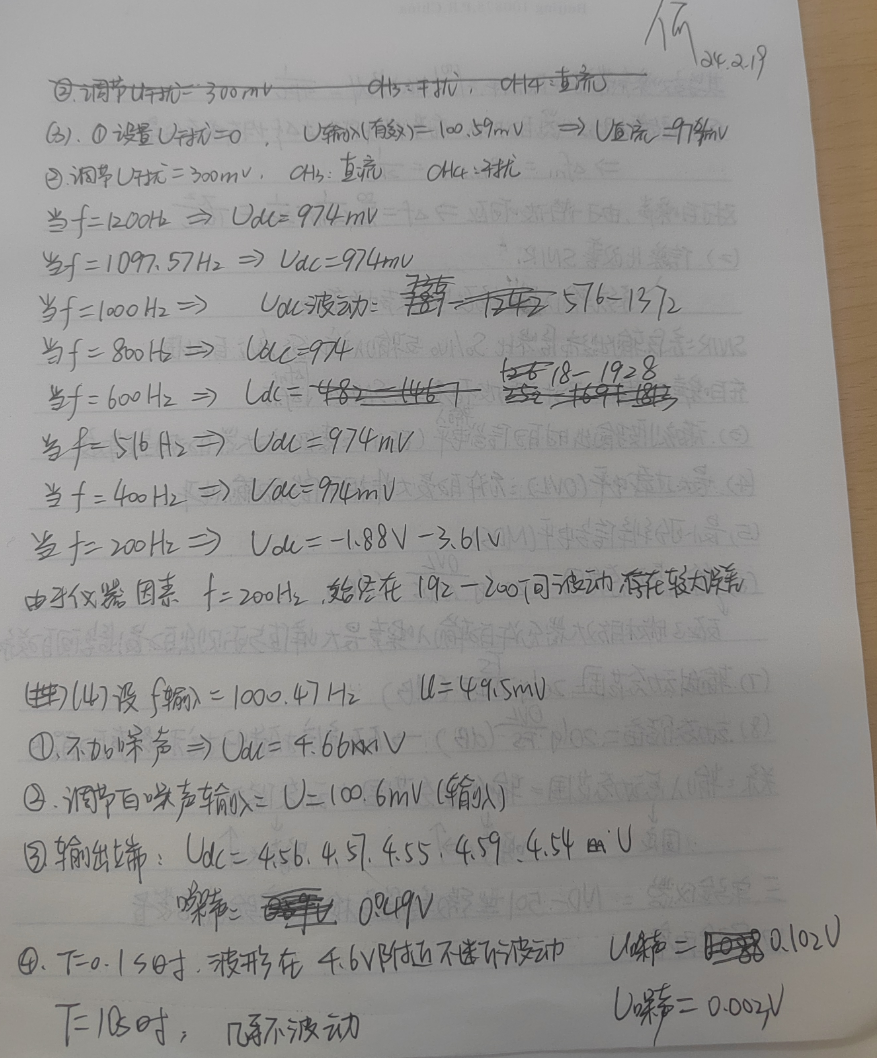 24.2.19
②.调节U干扰=300mV CH3:干扰, CH4:直流
(3).①设置U干扰=0, U输入(有效)=100.59mV ⇒ U直流=974mV
②.调节U干扰=300mV, CH3:直流 CH4:干扰
当f=1200Hz ⇒ Udc=974mV
当f=1097.57Hz ⇒ Udc=974mV
当f=1000Hz ⇒ Udc波动: 576-1372
当f=800Hz ⇒ Udc=974
当f=600Hz ⇒ Udc= 18-1928
当f=516Hz ⇒ Udc=974mV
当f=400Hz ⇒ Udc=974mV
当f=200Hz ⇒ Udc=-1.88V-3.61V
由于仪器因素 f=200Hz 始终在192-200间波动 存在较大误差
(4)设f输入=1000.47Hz U=49.5mV
①.不加噪声⇒Udc=4.66V
②.调节白噪声输入=U=100.6mV(输入)
③输出端: Udc=4.56、4.57、4.55、4.59、4.54 V
噪声= 0.949V
④.T=0.1s时.波形在4.6V附近不断波动 U噪声= 0.102V
T=10s时, 几乎不波动 U噪声=0.002V